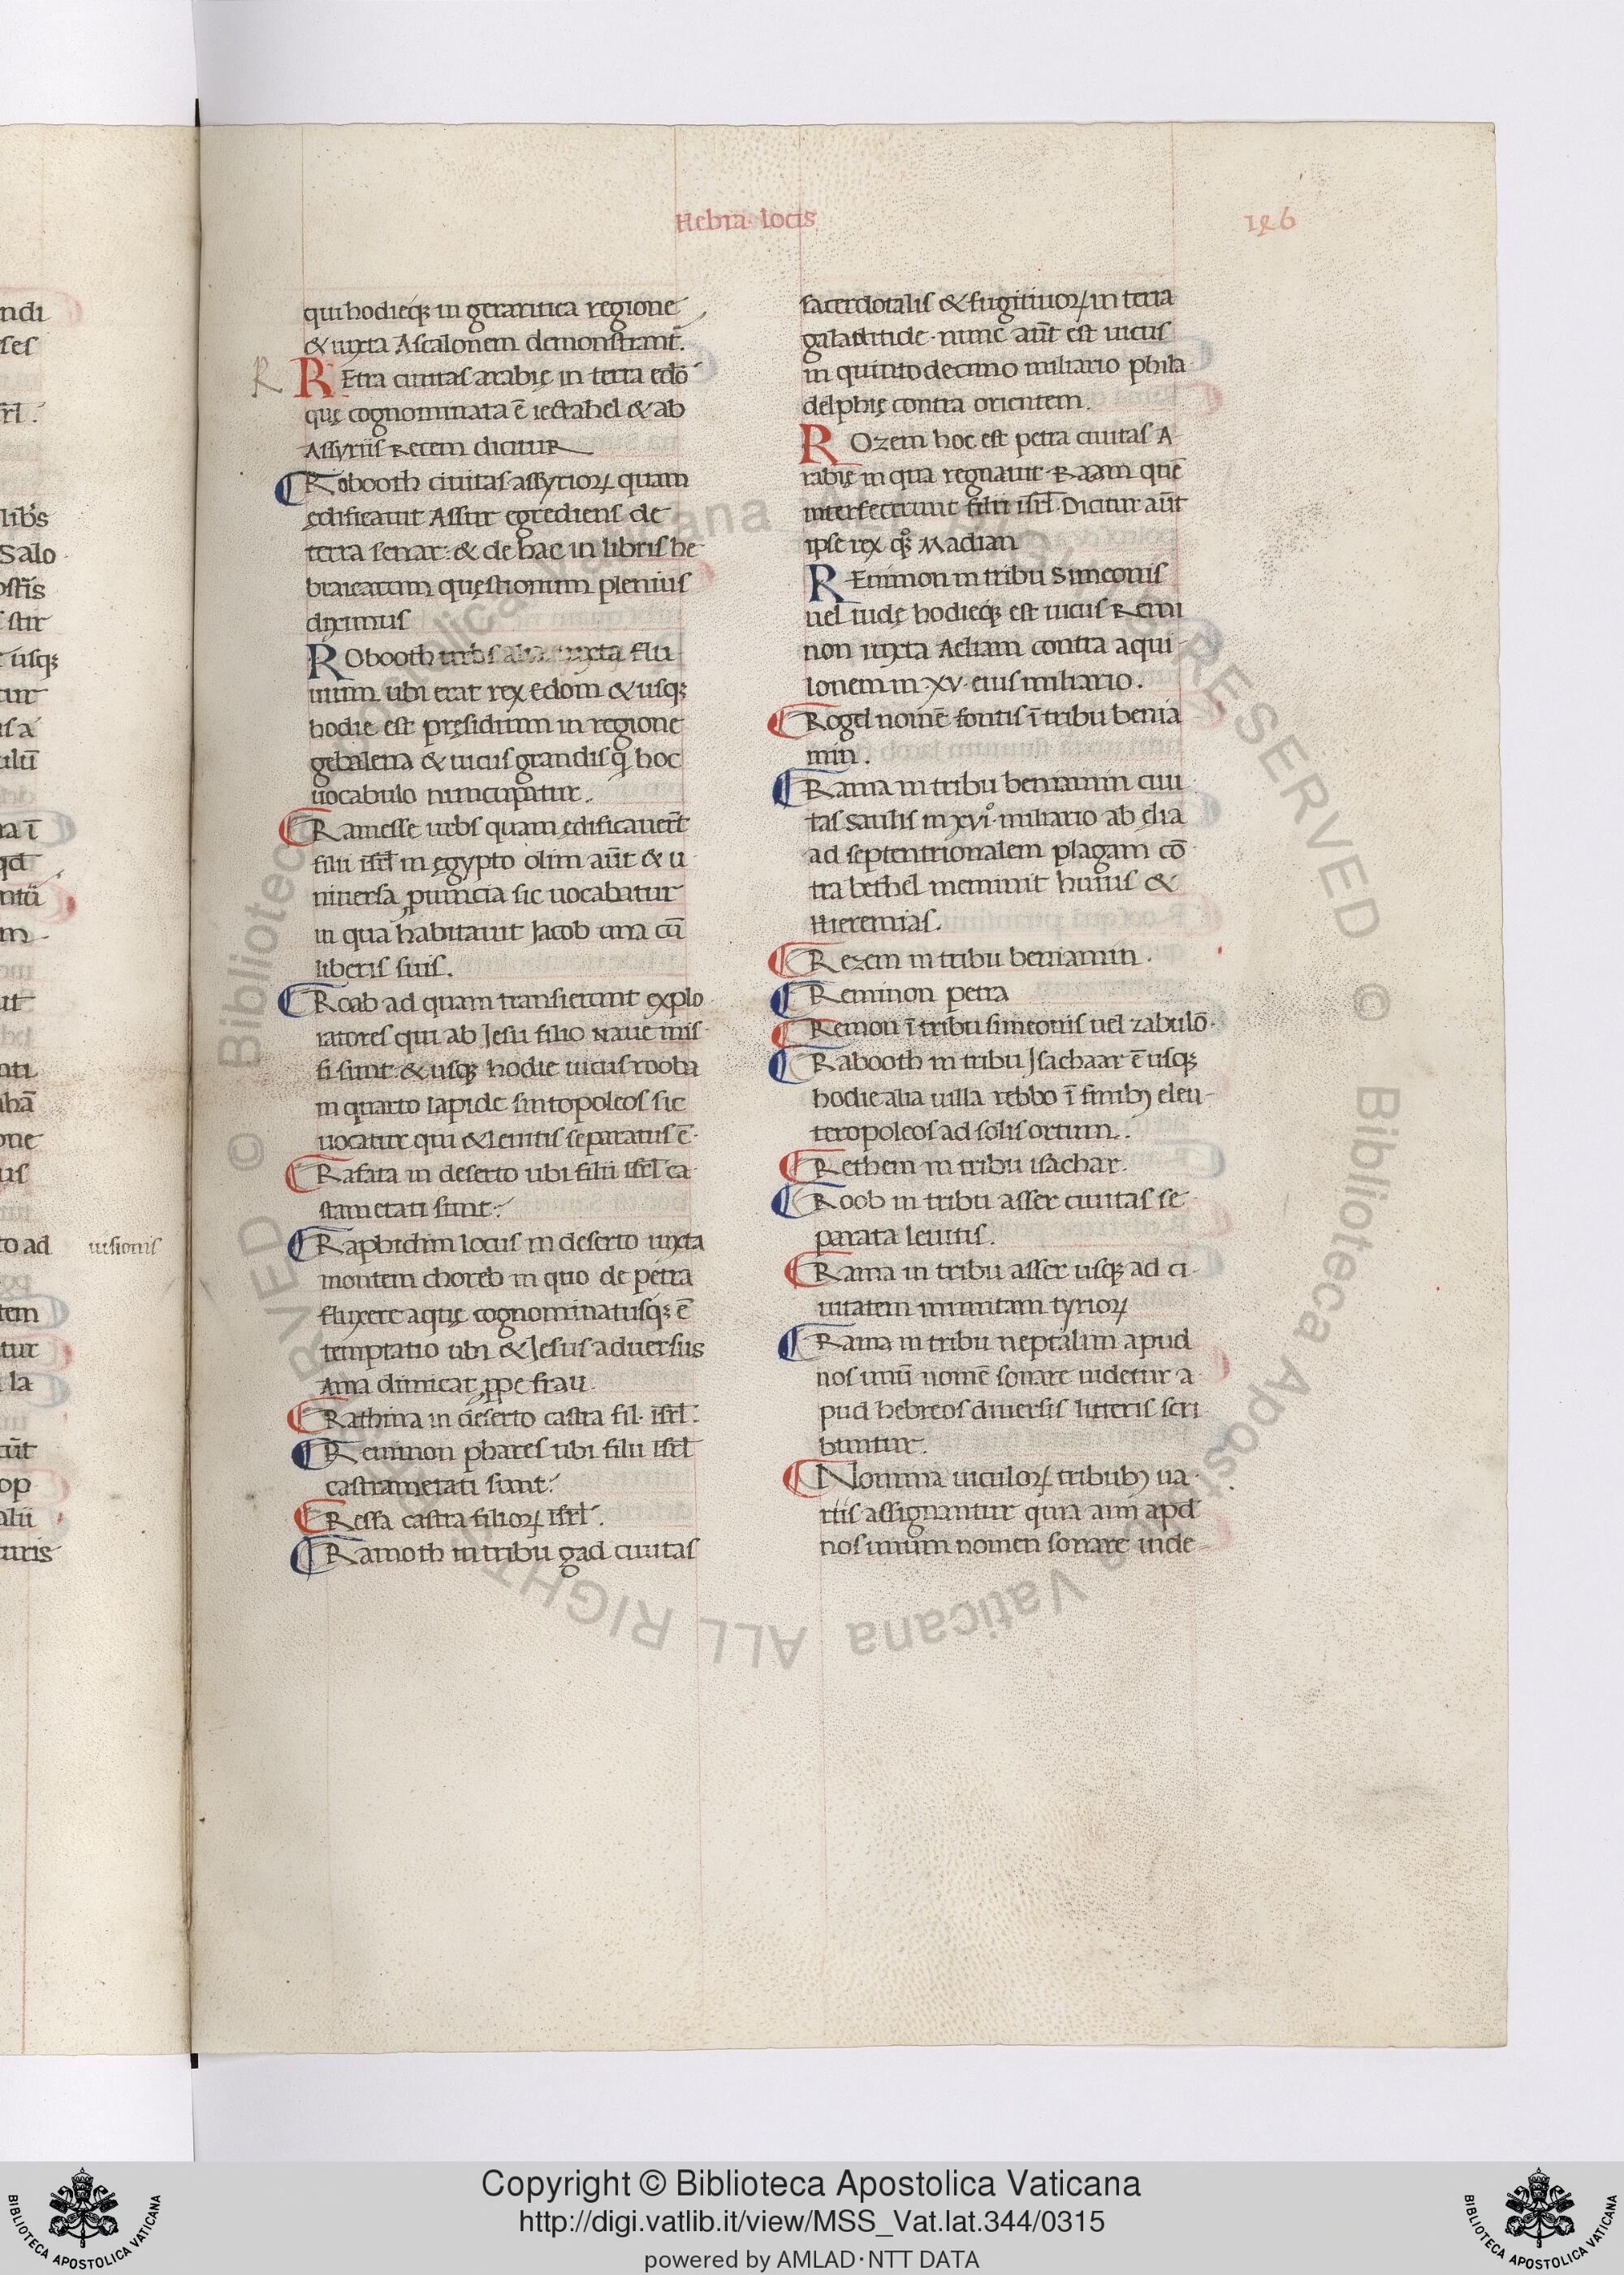 Hebra· locis
146
qui hodieq; in geraritica regione
& iuxta Ascalonem demonstrant̄.
R
REtra ciuitas arabię in terra edō
quę cognominata ē iectahel & ab
Assyriis Recem dicitur
Robooth ciuitas assyrioꝝ quam
ędificauit Assur egrediens de
terra senar: & de hac in libris he
braicarum quęstionum plenius
diximus
RObooth urbs alia iuxta flu
uium ubi erat rex edom & usq;
hodie est pręsidium in regione
gebalena & uicus grandis q̣ hoc
uocabulo nuncupatur.
Ramesse urbs quam ędificauer̄t
filii isrl̄ in ęgypto olim aūt & u
niuersa ꝓuincia sic uocabatur
in qua habitauit Jacob una cū
liberis suis.
Roab ad quam transierunt explo
ratores qui ab Jesu filio Naue mis
si sunt: & usq; hodie uicus rooba
in quarto lapide sintopoleos sic
uocatur qui & leuitis separatus ē·
Rafata in deserto ubi filii isrl̄ ca
stametati sunt:
Raphidim locus in deserto iuxta
montem choreb in quo de petra
fluxere aquę cognominatusq; ē
temptatio ubi & Jesus aduersus
Ama dimicat ꝓpe frau
Rathma in deserto castra fil· isrl̄:
Remmon phares ubi filii isrl̄
castrametati sunt:
Ressa castra filioꝝ isrl̄.
Ramoth in tribu gad ciuitas
sacerdotalis & fugitiuoꝝ in terra
galatitide· nunc aūt est uicus
in quinto decimo miliario phila
delphię contra orientem.
ROzem hoc est petra ciuitas A
rabię in qua regnauit Raam quē
interfecerunt filii isrl̄. Dicitur aūt
ipse rex q̊; Madian
REmmon in tribu Simeonis
uel iudę hodieq; est uicus Rem
non iuxta Aeliam contra aqui
lonem in·XV·eius miliario.
Rogel nomē fontis ī tribu benia
min.
Rama in tribu beniamin ciui
tas Saulis in xvi̊ miliario ab ęlia
ad septentrionalem plagam cō
tra bethel meminit huius &
Hieremias.
Rezem in tribu beniamin.
Reminon petra
Remon ī tribu simeonis uel zabulō·
Rabooth in tribu Jsachaar ē usq;
hodie alia uilla rebbo ī finibꝫ eleu
teropoleos ad solis ortum.
Rethem in tribu isachar.
Roob in tribu asser ciuitas se
parata leuitis.
Rama in tribu asser usq; ad ci
uitatem munitam tyrioꝝ
Rama in tribu neptalim apud
nos unū nomē sonare uidetur a
pud hebreos diuersis litteris scri
buntur.
Nomina uiculoꝝ tribubꝫ ua
riis assignantur quia am̄ apd
nos unum nomen sonare uide
ndi
ses
srl̄.
lib̄s
Salo
stir
usq;
tur
usionis
to ad
tem
tur
la
op
alii
turis
© Biblioteca Apostolica Vaticana ALL RIGHTS RESERVED
© Biblioteca Apostolica Vaticana ALL RIGHTS RESERVED
Copyright © Biblioteca Apostolica Vaticana
http://digi.vatlib.it/view/MSS_Vat.lat.344/0315
powered by AMLAD·NTT DATA
BIBLIOTECA APOSTOLICA VATICANA
BIBLIOTECA APOSTOLICA VATICANA